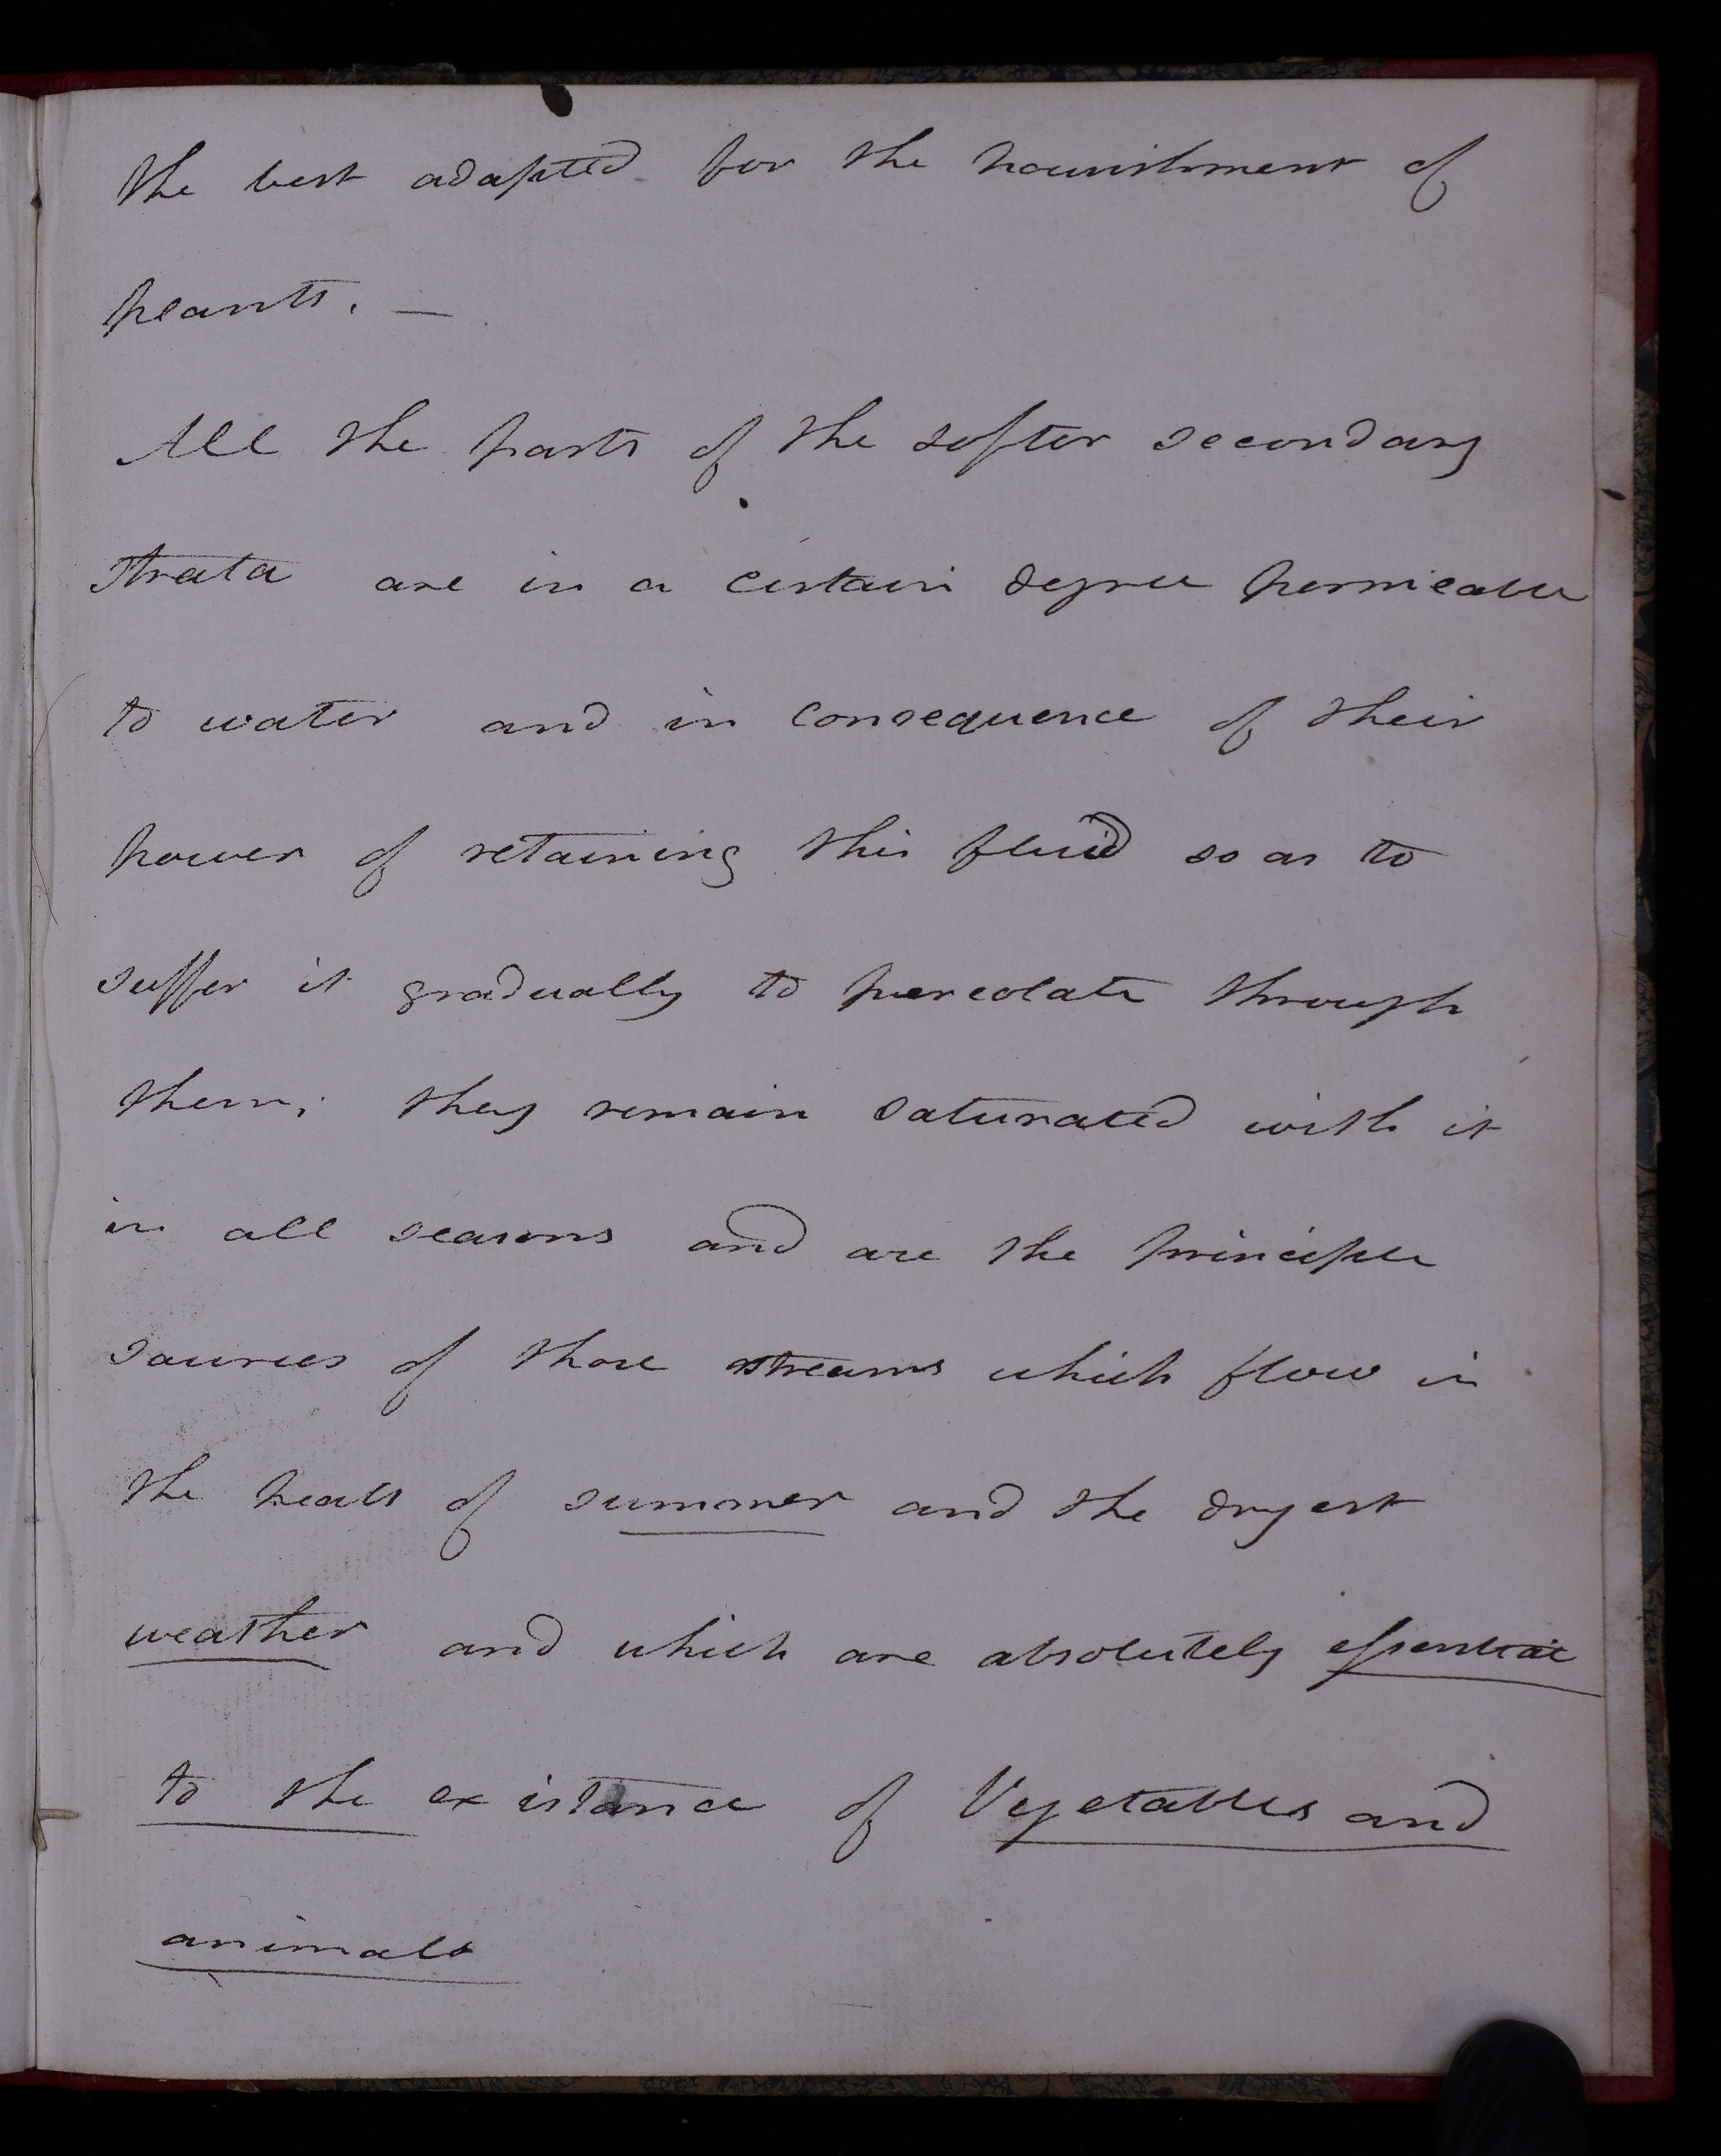 the best adapted for the nourishment of
plants. —
All the parts of the softer secondary
strata are in a certain degree permeable
to water and in consequence of their
power of retaining this fluid so as to
suffer it gradually to percolate through
them; they remain saturated with it
in all seasons and are the principle
sources of those streams which flow in
the heats of summer and the dryest
weather and which are absolutely essential
to the existance of Vegetables and
animals